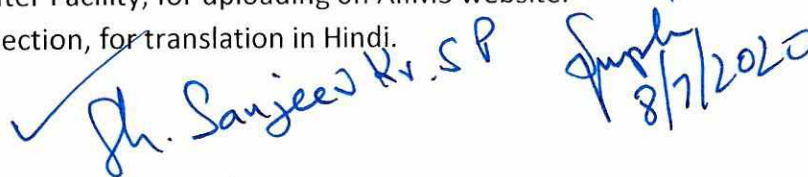 ter Facility, for uploading on AIIMS website.
ection, for translation in Hindi.
Sh. Sanjeev Kr. SP
8/7/2020